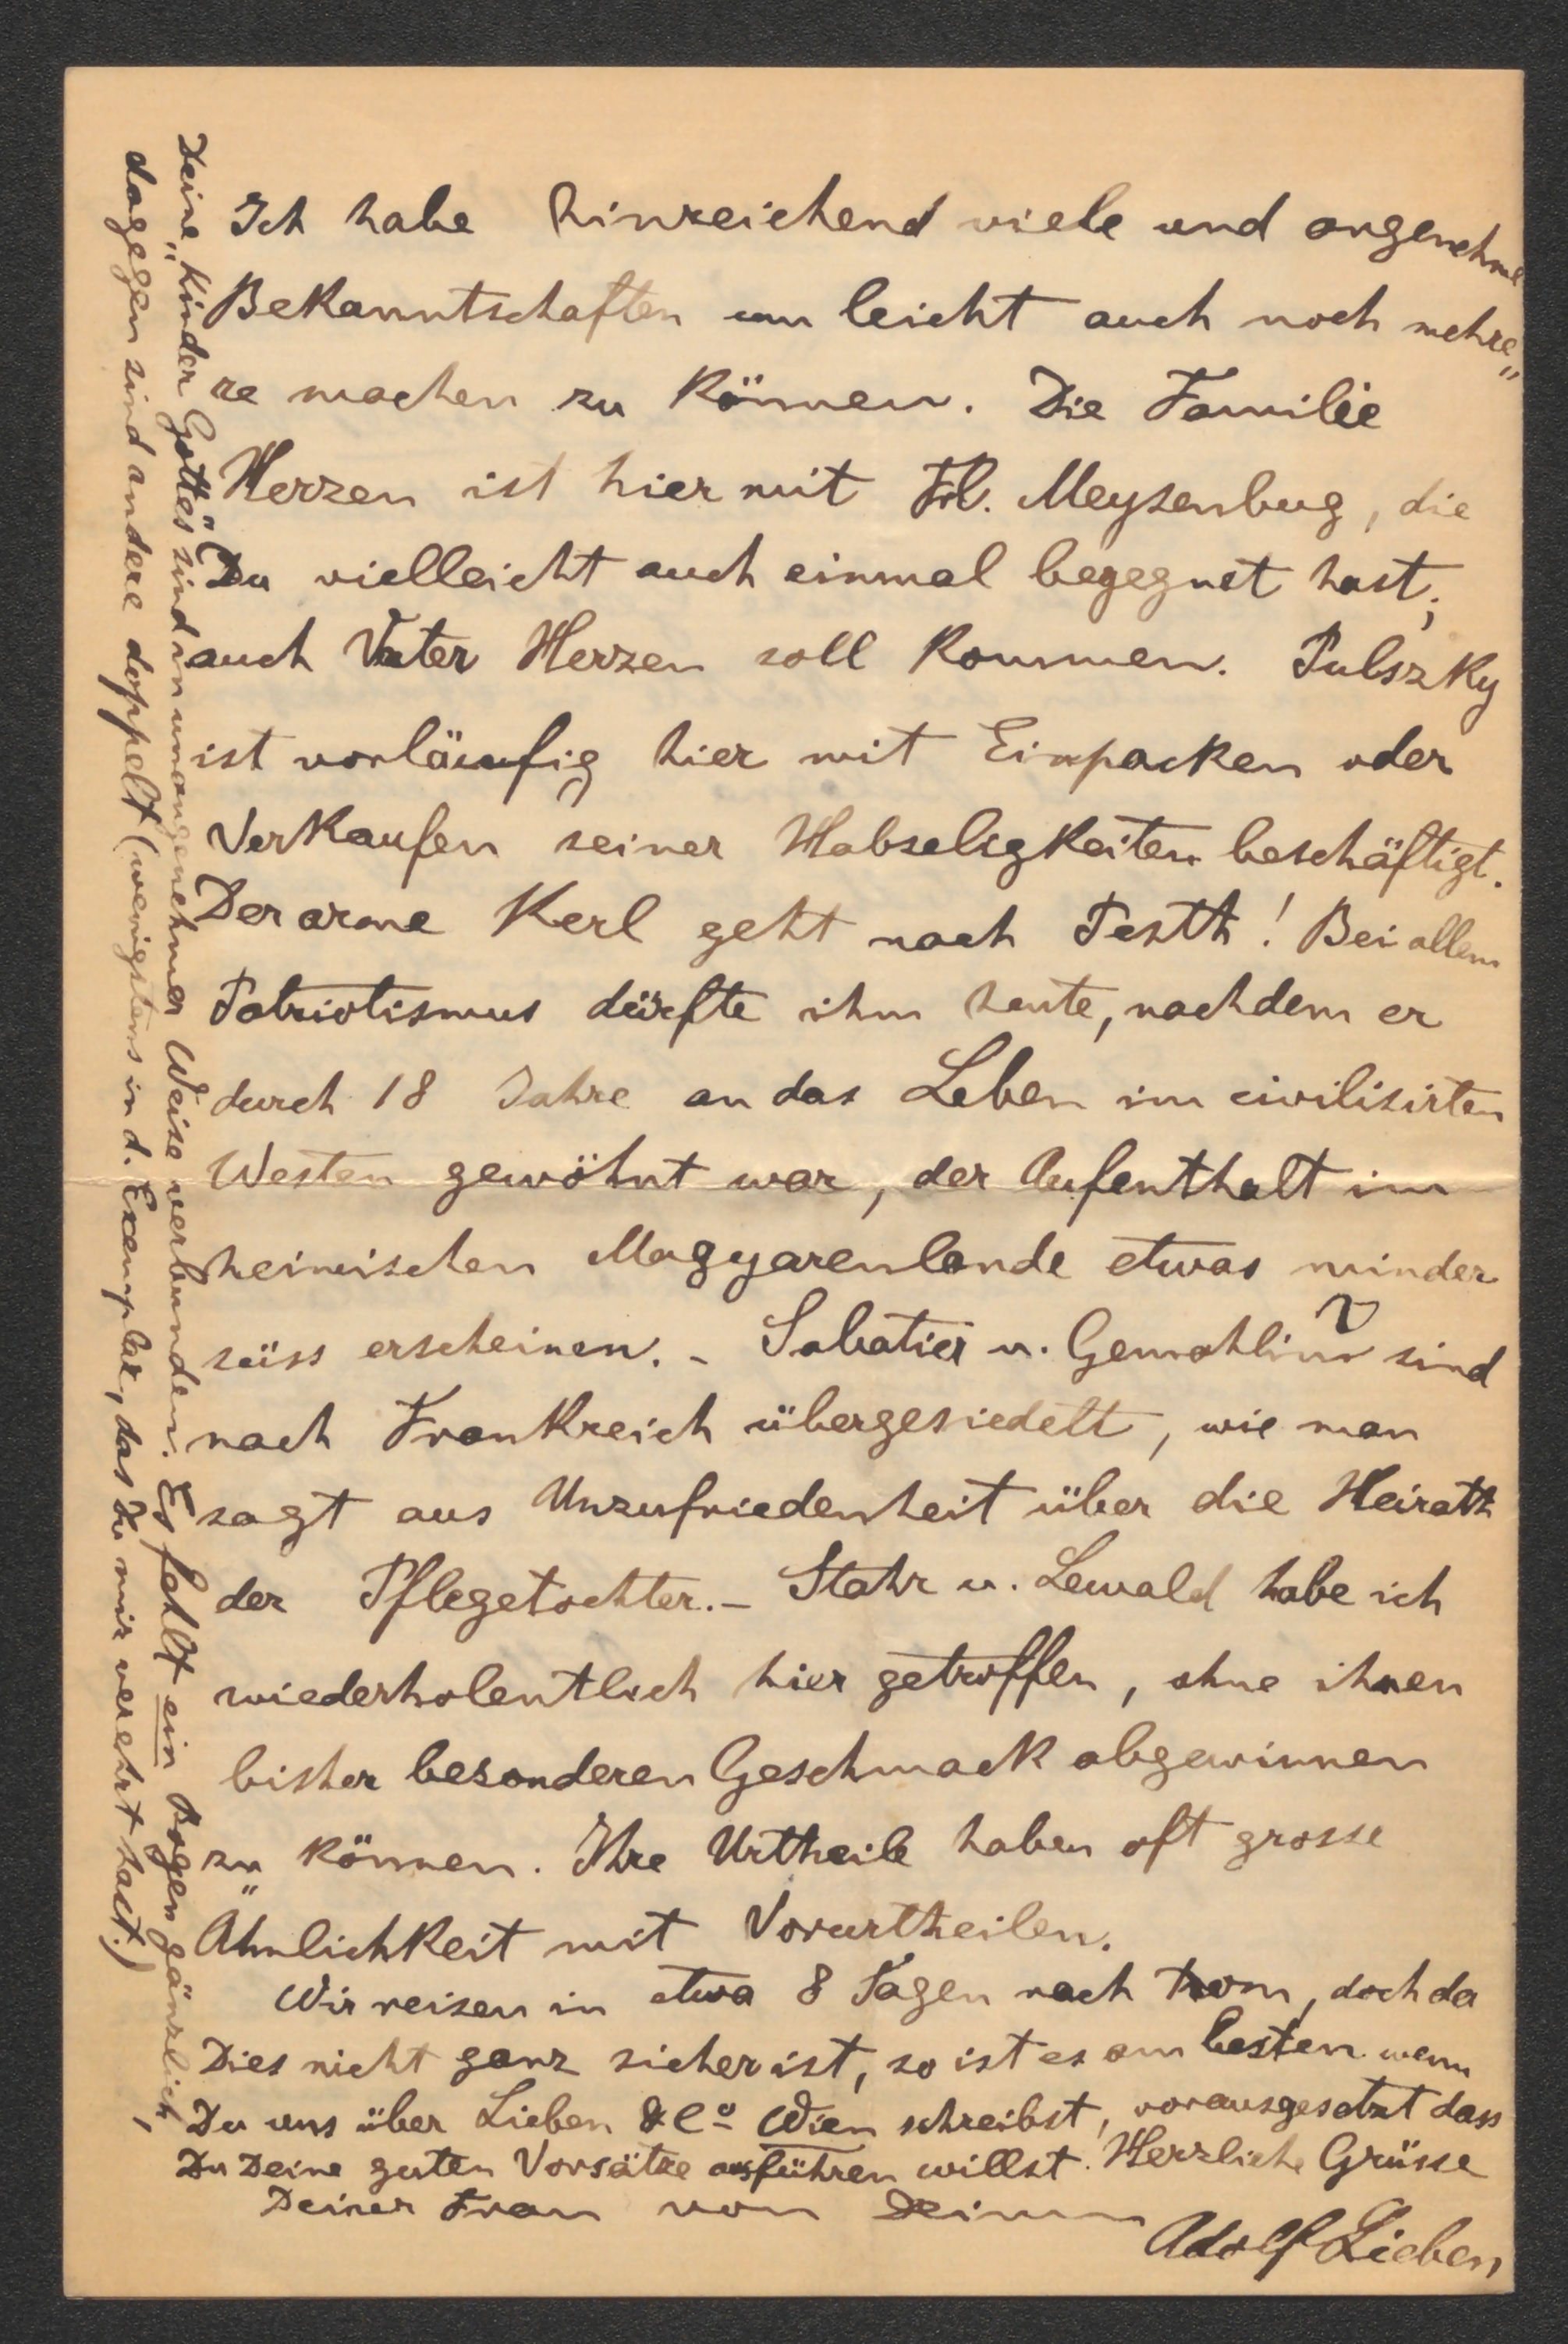 Ich habe hinreichend viele und angenehme
Bekanntschaften um leicht auch noch mehre„
re machen zu können. Die Familie
Herzen ist hier mit Frl. Meysenbug, die
Du vielleicht auch einmal begegnet hast;
auch Vater Herzen soll kommen. Pulszky
ist vorläufig hier mit Einpacken oder
Verkaufen seiner Habseligkeiten beschäftigt.
Der arme Kerl geht nach Pesth! Bei allem
Patriotismus dürfte ihm heute, nachdem er
durch 18 Jahre an das Leben im civilisirten
Westen gewöhnt war, der Aufenthalt im
heimischen Magyarenlande etwas minder
süss erscheinen. - Sabatier u. Gemahlinn sind
nach Frankreich übergesiedelt, wie man
sagt aus Unzufriedenheit über die Heirath
der Pflegetochter. - Stahr u. Lewald habe ich
wiederholentlich hier getroffen, ohne ihnen
bisher besonderen Geschmack abgewinnen
zu können. Ihre Urtheile haben oft grosse
Ähnlichkeit mit Vorurtheilen.
Wir reisen in etwa 8 Tagen nach Rom, doch da
Dies nicht ganz sicher ist, so ist es am besten wenn
Du uns über Lieben & Co Wien schreibst, vorausgesetzt dass
Du Deine guten Vorsätze ausführen willst. Herzliche Grüsse
Deiner Frau von Deinem
Adolf Lieben
Deine „Kinder Gottes" sind in unangenehmer Weise verbunden. Es fehlt ein Bogen gänzlich,
dagegen sind andere doppelt (wenigstens in d. Exemplar, das Du mir verehrt hast.)